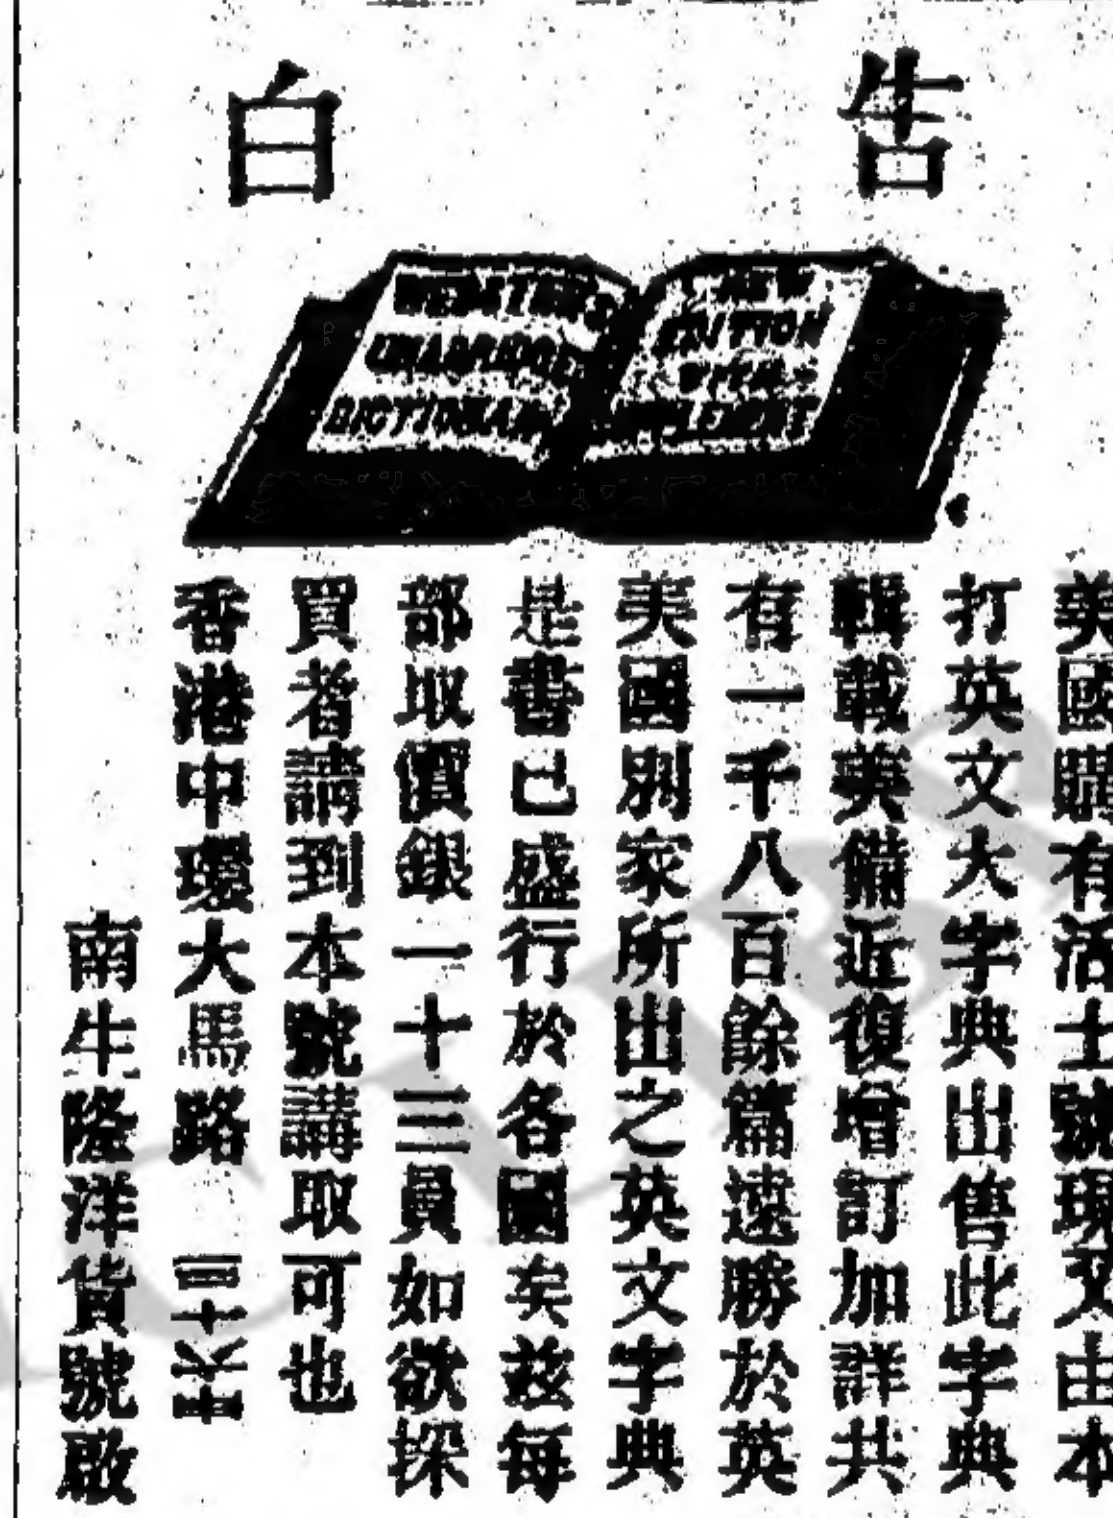 告白
WEBSTER'S
UNABRIDGED
DICTIONARY
NEW
EDITION
WITH
SUPPLEMENT
美國購有活士號現又由本
打英文大字典出售此字典
輯載英備近復增訂加詳共
有一千八百餘篇遠勝於英
美國別家所出之英文字典
是書已盛行於各國矣茲每
部取價銀一十三員如欲採
買者請到本號講取可也
香港中環大馬路
南牛隆洋貨號啟